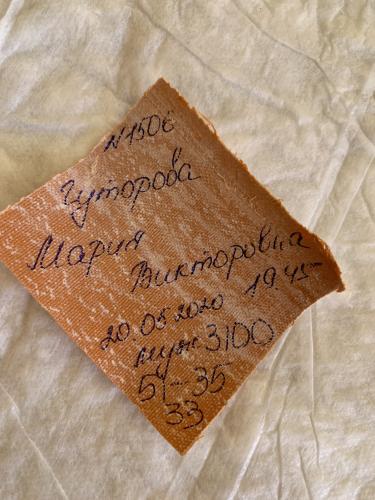 N 1506
Гуторова
Мария
Викторовна
20.05.2020 19.45
муж 3100
51-35
33